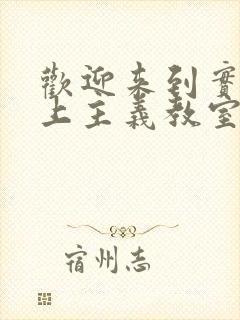 歡迎来到實
上主義教室
宿州志